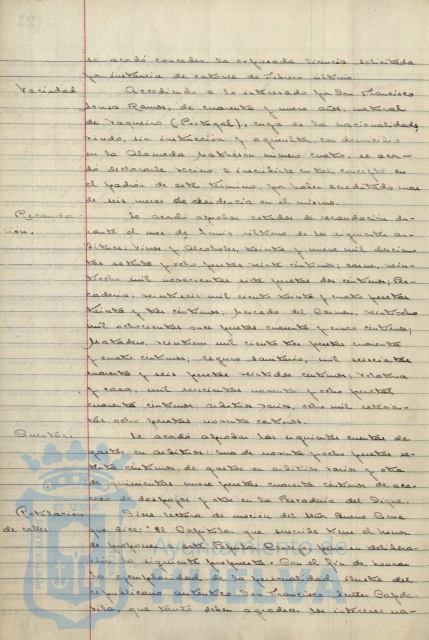 se acordó conceder la expresada licencia solicitada
por instancia de catorce de Febrero último.
Vecindad Accediendo a lo interesado por Don Francisco
Sousa Ramos, de cuarenta y nueve años, natural
de Vaqueiro (Portugal), cuya es la nacionalidad,
viudo, sin instrucción y agricultor, con domicilio
en la Alameda número cuatro, se acor-
dó declararle vecino e inscribirle en tal concepto en
el padrón de este término, por haber acreditado mas
de seis meses de residencia en el mismo.
Recauda- Se acordó aprobar estados de recaudación du-
ción. rante el mes de Junio último de los siguientes ar-
bitrios: Vinos y Alcoholes, treinta y nueve mil doscien-
tas setenta y ocho pesetas veinte céntimos; carnes, vein-
tiocho mil novecientas siete pesetas dos céntimos; Pes-
cadería, veintiseis mil ciento treinta y cuatro pesetas
treinta y tres céntimos; Mercado del Carmen, veintiocho
mil ochocientas once pesetas cuarenta y cinco céntimos;
Matadero, veintiun mil ciento tres pesetas noventa
y cuatro céntimos; seguro sanitario, mil seiscientas
cuarenta y seis pesetas veintidos céntimos; volatería
y caza, mil seiscientas noventa y ocho pesetas
cuarenta céntimos; arbitrios varios, ocho mil setecien-
tas ocho pesetas noventa céntimos.
Cuentas. Se acordó aprobar las siguientes cuentas de
gastos en arbitrios: una de noventa y ocho pesetas se-
tenta céntimos de gastos en arbitrios varios y otra
de quinientas nueve pesetas cuarenta céntimos de aca-
rreo de despojos y otro en la Pescadería del Dique.
Rotulación Dióse lectura de moción del Señor Bueno Cruz
de calles. que dice: "El Capitular que suscribe tiene el honor
de proponer a este Cabildo para su delibera-
ción la siguiente propuesta. Con el fin de honrar
la ejemplaridad de la personalidad ilustre del
republicano auténtico Don Francisco
que tanto deben agradecer los intereses ma-
Ayuntamiento de